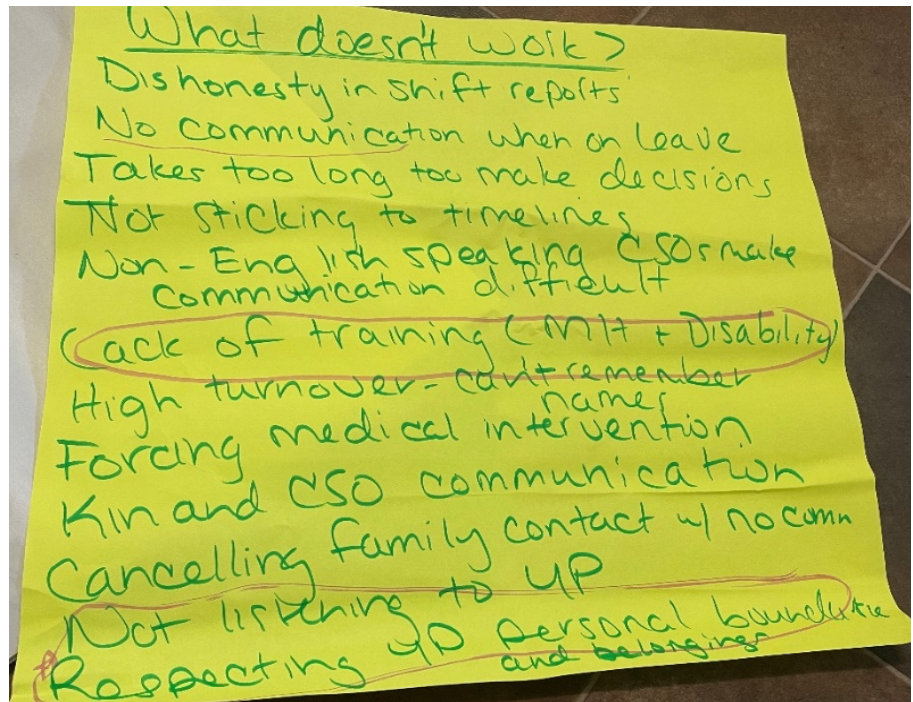 What doesn't work?
Dishonesty in shift reports
No communication when on leave
Takes too long too make decisions
Not sticking to timelines
Non-English speaking CSOs make
communication difficult
Lack of training (MH + Disability)
High turnover - can't remember
names
Forcing medical intervention
Kin and CSO communication
Cancelling family contact w/ no comm
Not listening to YP
Respecting YP personal boundaries
and belongings